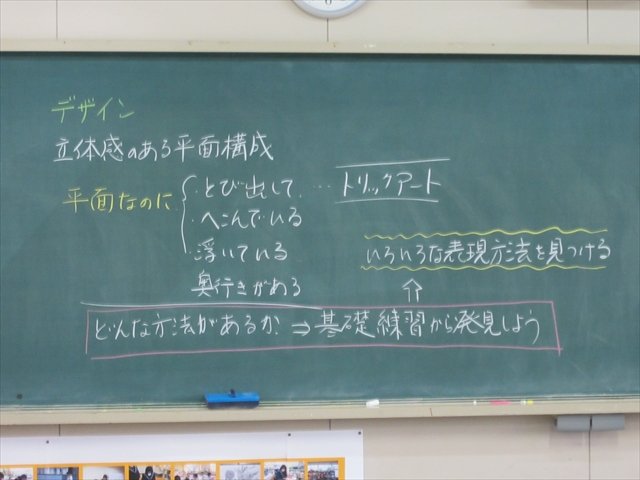 デザイン
立体感のある平面構成
平面なのに とび出して ‥‥ トリックアート
へこんでいる
浮いている
奥行きがある
いろいろな表現方法を見つける
⇧
どんな方法があるか ⇒ 基礎練習から発見しよう